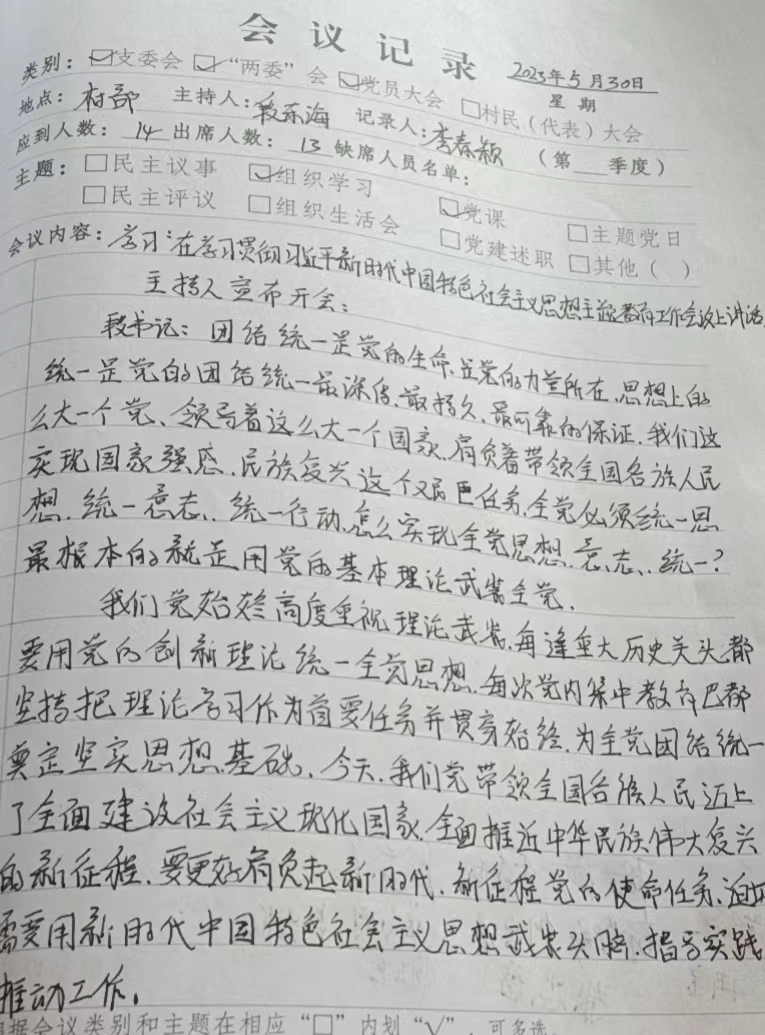 会议记录
2023年5月30日
类别：☑支委会 ☑“两委”会 ☑党员大会 □村民（代表）大会
星期
地点：村部 主持人：段东海 记录人：李春颖 （第 季度）
应到人数：14 出席人数：13 缺席人员名单：
主题：□民主议事 ☑组织学习 ☑党课 □主题党日
□民主评议 □组织生活会 □党建述职 □其他（ ）
会议内容：学习“在学习贯彻习近平新时代中国特色社会主义思想主题教育工作会议上讲话
主持人宣布开会：
段书记：团结统一是党的生命，是党的力量所在，思想上的
统一是党的团结统一最深传、最持久、最可靠的保证，我们这
么大一个党、领导着这么大一个国家，肩负着带领全国各族人民
实现国家强盛、民族复兴这个艰巨任务，全党必须统一思
想、统一意志、统一行动，怎么实现全党思想、意志、统一？
最根本的就是用党的基本理论武装全党。
我们党始终高度重视理论武装，每逢重大历史关头都
要用党的创新理论统一全党思想，每次党内集中教育巴都
坚持把理论学习作为首要任务并贯穿始终，为全党团结统一
奠定坚实思想基础，今天，我们党带领全国各族人民迈上
了全面建设社会主义现化国家，全面推近中华民族伟大复兴
的新征程，要更好肩负起新时代，新征程党的使命任务，迫切
需要用新时代中国特色社会主义思想武装头脑，指导实践
推动工作。
据会议类别和主题在相应“□”内划“√”，可多选